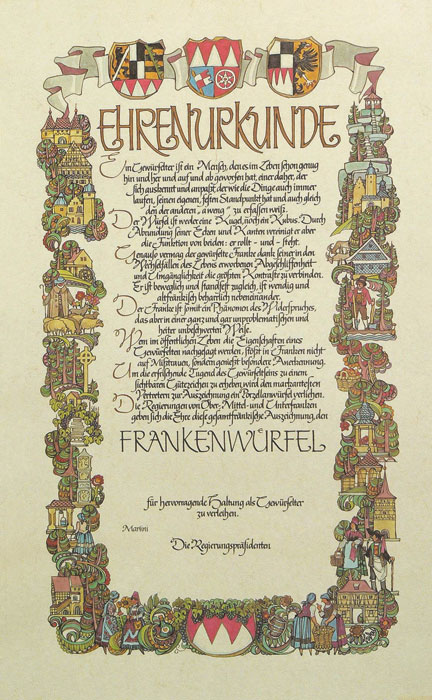 EHRENURKUNDE
Ein Gewürfelter ist ein Mensch, den es im Leben schon genug
hin und her und auf und ab geworfen hat, einer daher, der
sich auskennt und anpaßt, der wie die Dinge auch immer
laufen, seinen eigenen, festen Standpunkt hat und auch gleich
den der anderen „a weng" zu erfassen weiß.
Der Würfel ist weder eine Kugel, noch ein Kubus. Durch
Abrundung seiner Ecken und Kanten vereinigt er aber
die Funktion von beiden: er rollt - und - steht.
Genauso vermag der gewürfelte Franke dank seiner in den
Wechselfällen des Lebens erworbenen Abgeschliffenheit
und Umgänglichkeit die größten Kontraste zu verbinden.
Er ist beweglich und standfest zugleich, ist wendig und
altfränkisch beharrlich nebeneinander.
Der Franke ist somit ein Phänomen des Widerspruches,
das aber in einer ganz und gar unproblematischen und
heiter unbeschwerten Weise.
Wenn im öffentlichen Leben die Eigenschaften eines
Gewürfelten nachgesagt werden, stößt in Franken nicht
auf Mißtrauen, sondern genießt besondere Anerkennung.
Um die erfrischende Tugend des Gewürfeltseins zu einem
sichtbaren Gütezeichen zu erheben wird den markantesten
Vertretern zur Auszeichnung ein Porzellanwürfel verliehen.
Die Regierungen von Ober- Mittel- und Unterfranken
geben sich die Ehre diese gesamtfränkische Auszeichnung, den
FRANKENWÜRFEL
für hervorragende Haltung als Gewürfelter
zu verleihen.
Martini
Die Regierungspräsidenten